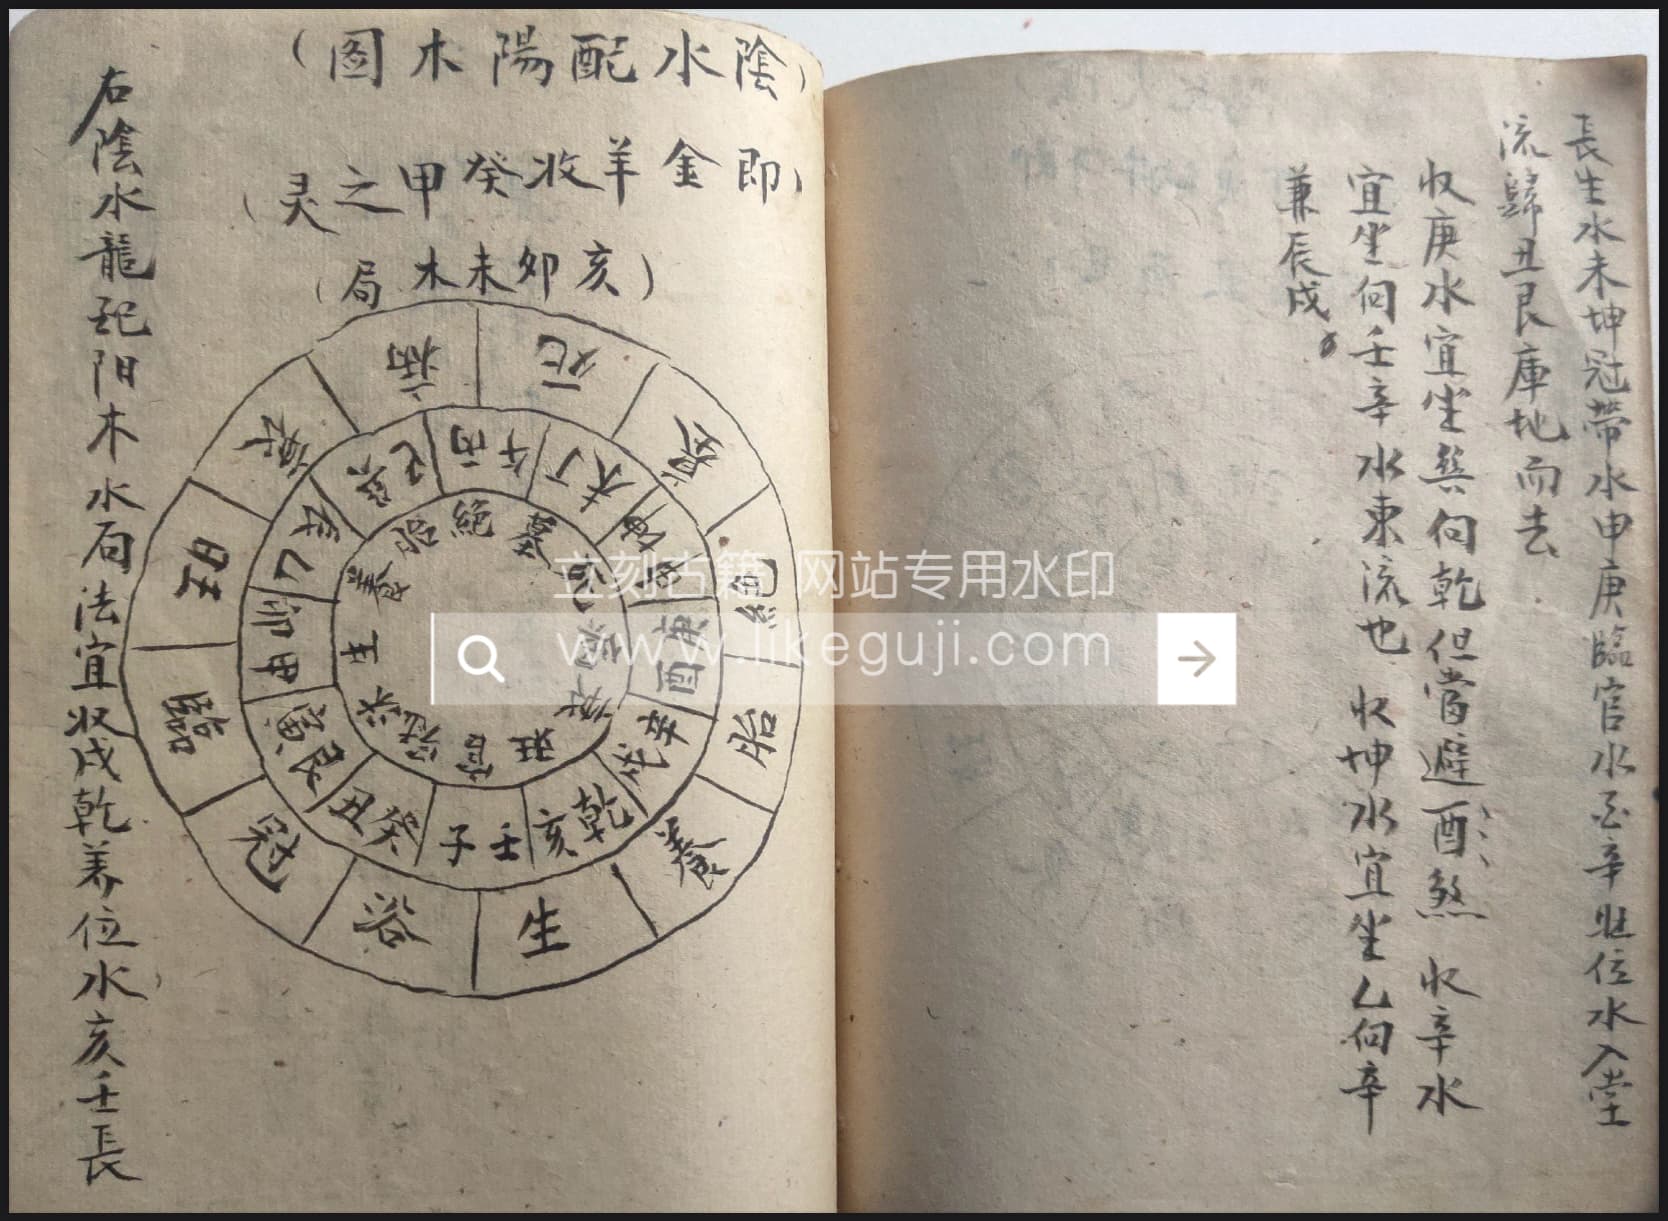 （陰水配陽木圖）
（即金羊收癸甲之灵）
（亥卯未木局）
病 死 衰 絕 胎 養 生 浴 冠 臨 旺 衰
巽巳 丙午 丁未 坤申 庚酉 辛戌 乾亥 壬子 癸丑 艮寅 甲卯 乙辰
胎 絕 墓 死 病 衰 旺 官 冠 沐 生 養
右陰水龍配阳木水局法宜収戌乾养位水亥壬長
長生水未坤冠帶水申庚臨官水西辛旺位水入堂
流歸丑艮庫地而去
収庚水宜坐巽向乾但當避酉煞 收辛水
宜坐向壬辛水東流也 収坤水宜坐乙向辛
兼辰戌。
立刻古籍 网站专用水印
www.likeguji.com